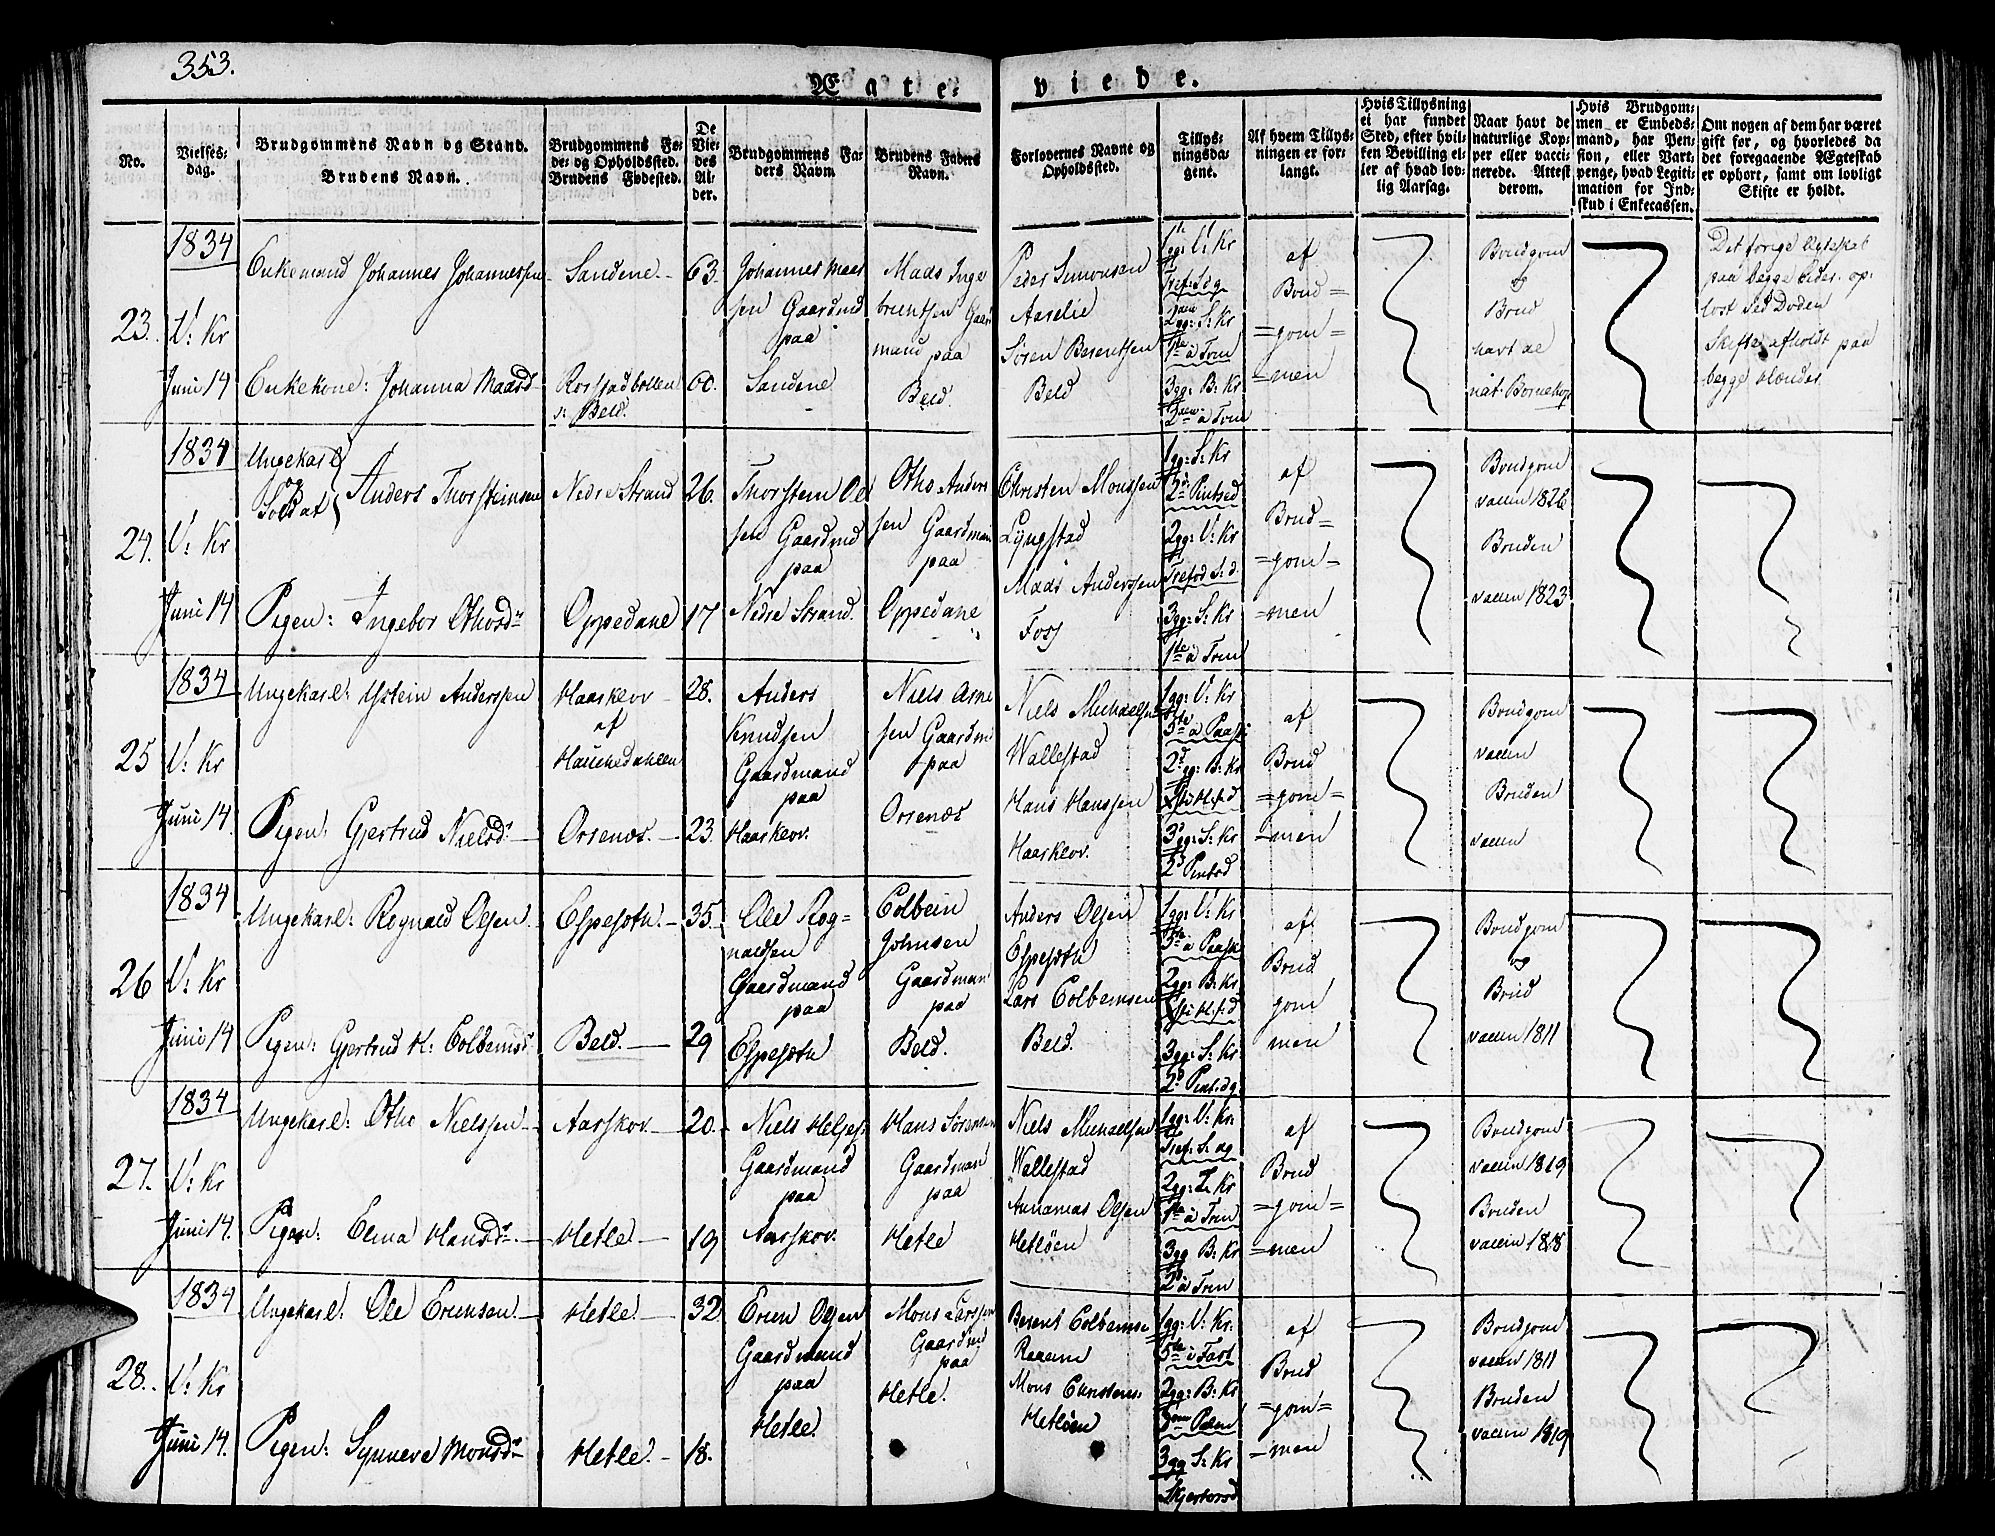 353.
Ægte-
viede.
No.
Vielses-
dag.
Brudgommens Navn og Stand.
Brudens Navn.
Brudgommens Fø-
de- og Opholdssted.
Brudens Fødested.
De
Vie-
des
Al-
der.
Brudgommens Fa-
ders Navn.
Brudens Faders
Navn.
Forlovernes Navne og
Opholdssted.
Tillys-
ningsda-
gene.
Af hvem Tillys-
ningen er for-
langt.
Hvis Tillysning
ei har fundet
Sted, efter hvil-
ken Bevilling el-
ler af hvad lov-
lig Aarsag.
Naar havt de
naturlige Kop-
per eller vacci-
nerede. Attest
derom.
Hvis Brudgom-
men er Embeds-
mand, har Pen-
sion, eller Vart-
penge, hvad Legiti-
mation for Ind-
skud i Enkecassen.
Om nogen af dem har været
gift før, og hvorledes da
det foregaaende Ægteskab
er ophørt, samt om lovligt
Skifte er holdt.
23.
1834
V: Kr
Juni 14
Enkemand Johannes Johannessen
Enkekone: Johanna Maasd
Sandene
Beld.
63.
60.
Johannes
sen Gaardmd
paa
Sandene
Mads Inge
brentsen Gaar
mand paa
Beld.
Peder Simonsen
Aarelie
Søren Berentsen
Beld
1gg: V: Kr
Tref: S: g
2gg: S: Kr
1te a Trin
3gg: B: Kr
2den a Trin
af
Brud=
=gom=
=men
Brudgom
og
Brud
havt de
nat. Bornekop
Det forige Egteskab
paa begge Sider op-
lost ved Doden
Skifte afholdt paa
begge Hænder.
24.
1834
V: Kr
Juni 14
Ungekarl
og
Soldat
Anders Thorsteinsen
Pigen: Ingebor Othosdr
Nedre Strand
Oppedane
26.
17
Thorstein Ol
sen Gaardmd
paa
Nedre Strand.
Otho Anders
sen Gaardman
paa
Oppedane
Christen Monssen
Lyngstad
Mads Anderssen
Foss
1gg: S: Kr
2d Pintsed
2gg: V: Kr
Trefod S: d.
3gg: S: Kr
1te a Trin
af
Brud=
=gom=
=men
Brudgom
vacin 1826
Bruden
vacin 1823
25
1834
V: Kr
Juni 14.
Ungekarl: Ystein Anderssen
Pigen: Gjertrud Nielsdr
Haasklov
af
Orsenos.
28.
23.
Anders
Knudsen
Gaardmand
paa
Haasklov.
Niels Arne
sen Gaardm
paa
Orsenos
Niels Michaelsen
Wallestad
Hans Hanssen
Haasklov.
1gg: V: Kr
3te a Paask
2gg: B: Kr
3gg: S: Kr
2d Pintsd
af
Brud
=gom=
=men
Brudgom
vacin
Bruden
vacin
26
1834
V: Kr
Juni 14
Ungekarl: Rognald Olsen.
Pigen: Gjertrud H: Colbeinsd
Espesotn.
Beld.
35.
29
Ole Rog=
naldsen
Gaardmand
paa
Espesotn
Colbein
Johnsen
Gaardman
paa
Beld.
Anders Olsen
Espesotn
Lars Colbeinsen
Beld.
1gg: V: Kr
5te a Paask
2gg: B: Kr
3gg: S: Kr
2d Pint: dg
af
Brud
gom
men
Brudgom
og
Brud
vacin 1811
27.
1834
V: Kr
Juni 14.
Ungekarl: Otho Nielssen
Pigen: Elina Hansdr
Aarskov
Hetle
20.
19
Niels Heljes
Gaardmand
paa
Aarskov.
Hans Sørensen
Gaardman
paa
Hetle
Niels Michaelsen
Wallestad
Annanias Olsen
Hetløen
1gg: V: Kr.
Tref: S: dg
2gg: Kr
1te a Trin
3gg B: Kr
2d a Trin
af
Brud
=gom=
=men
Brudgom
vacin 1819
Bruden
vacin 1818
28.
1834
V: Kr
Juni 14.
Ungekarl: Ole Ericnsen
Pigen: Synneve Monsdr
Hetle.
Hetle.
32
18.
Olsen
Gaardmand
paa
Hetle.
Mons Larssen
Gaardmd
paa
Hetle.
Berent Colbeinse
Mons Christens.
Hetløen
1gg: V: Kr.
5te i Fast
2gg: B: Kr
Palm
3gg S: Kr
Skjertorsd
af
Brud
=gom=
=men
Brudgom
vacin 1811
Bruden
vacin 1819